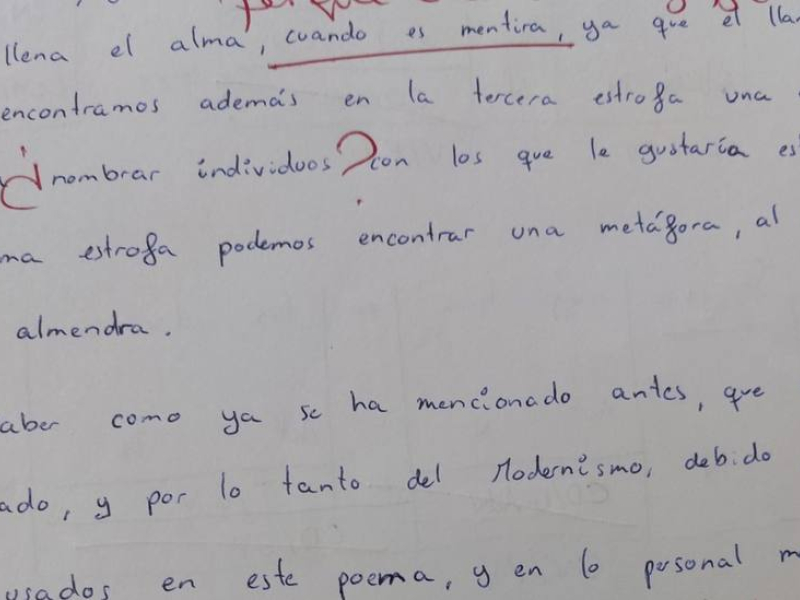 llena el alma, cuando es mentira, ya que el
encontramos además en la tercera estrofa una
¿ nombrar individuos ? con los que le gustaría
estrofa podemos encontrar una metáfora, al
almendra.
como ya se ha mencionado antes, que
y por lo tanto del Modernismo, debido
usados en este poema, y en lo personal